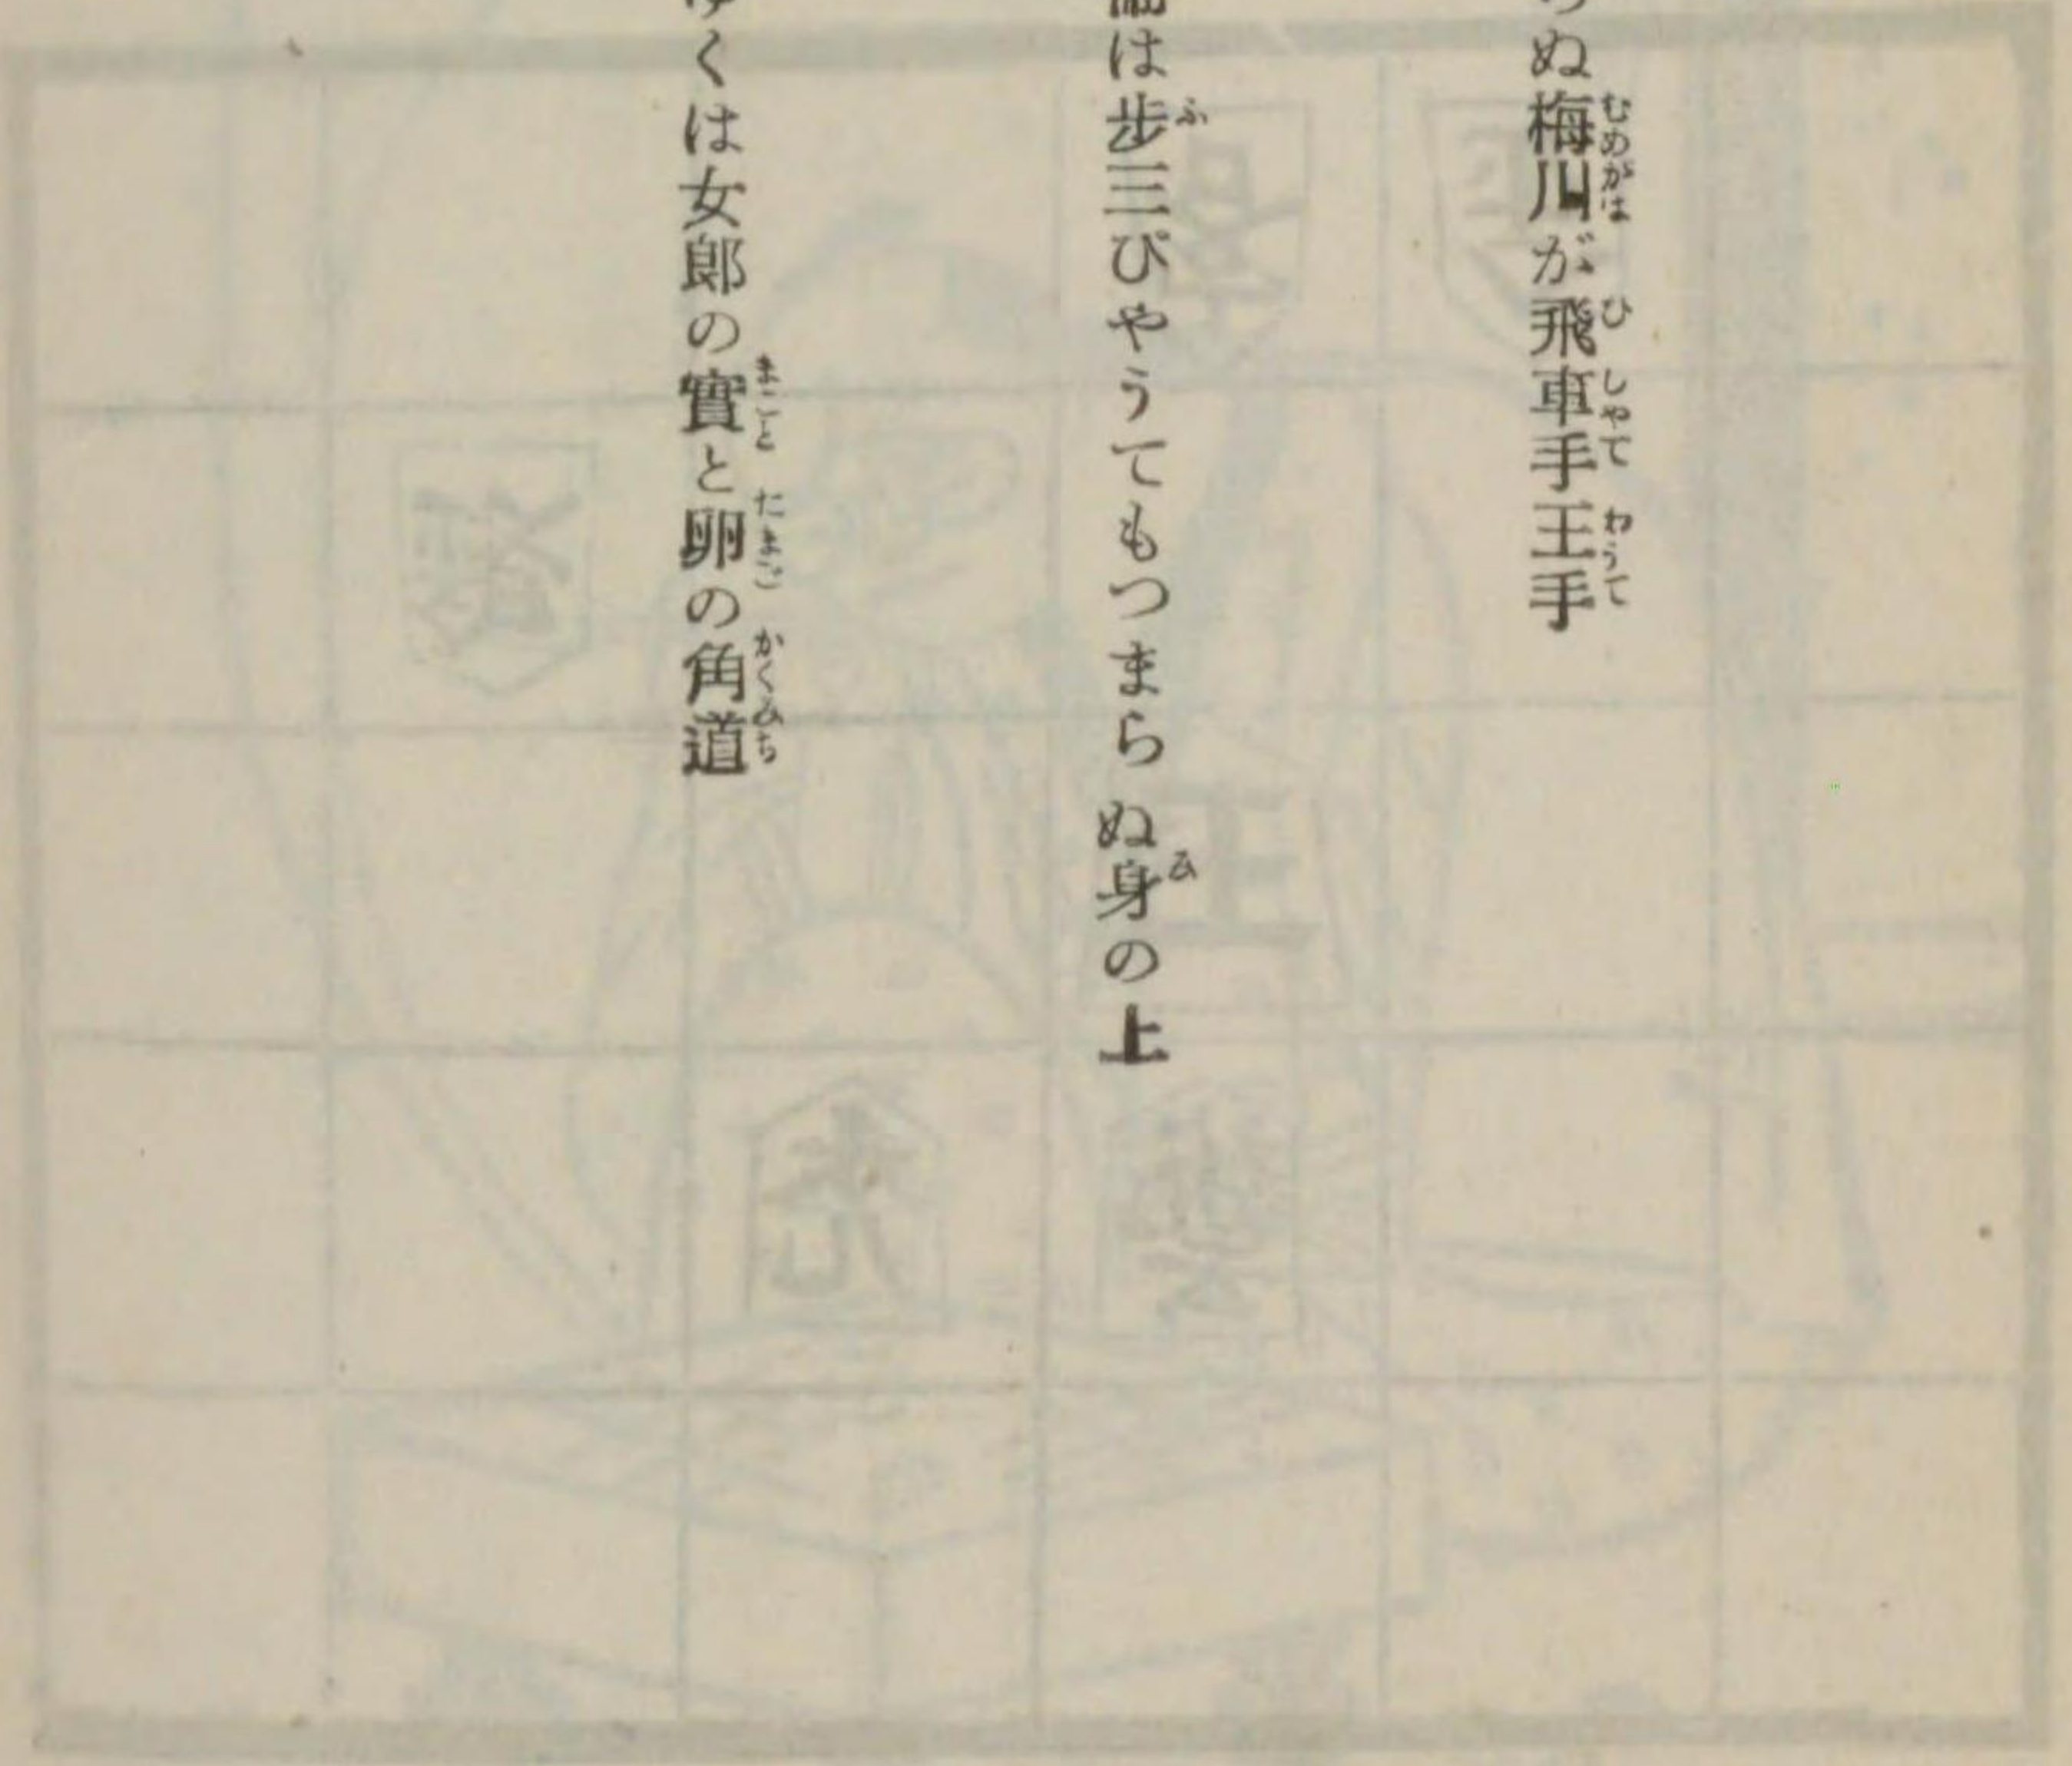 ぬ梅川が飛車手王手
は步三ぴやうてもつまらぬ身の上
くは女郎の實と卵の角道